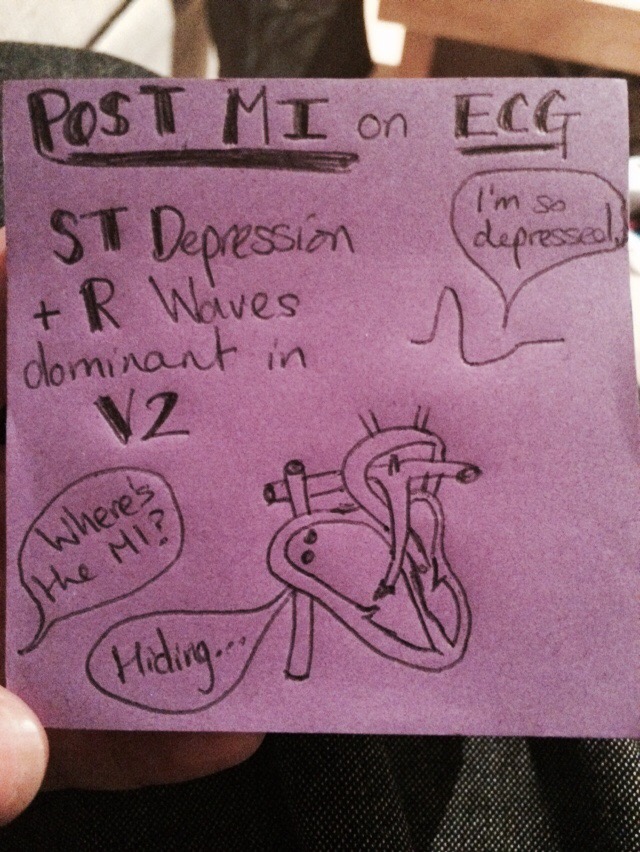 POST MI on ECG
I'm so
depressed.
ST Depression
+ R Waves
dominant in
V2
Where's
the MI?
Hiding...